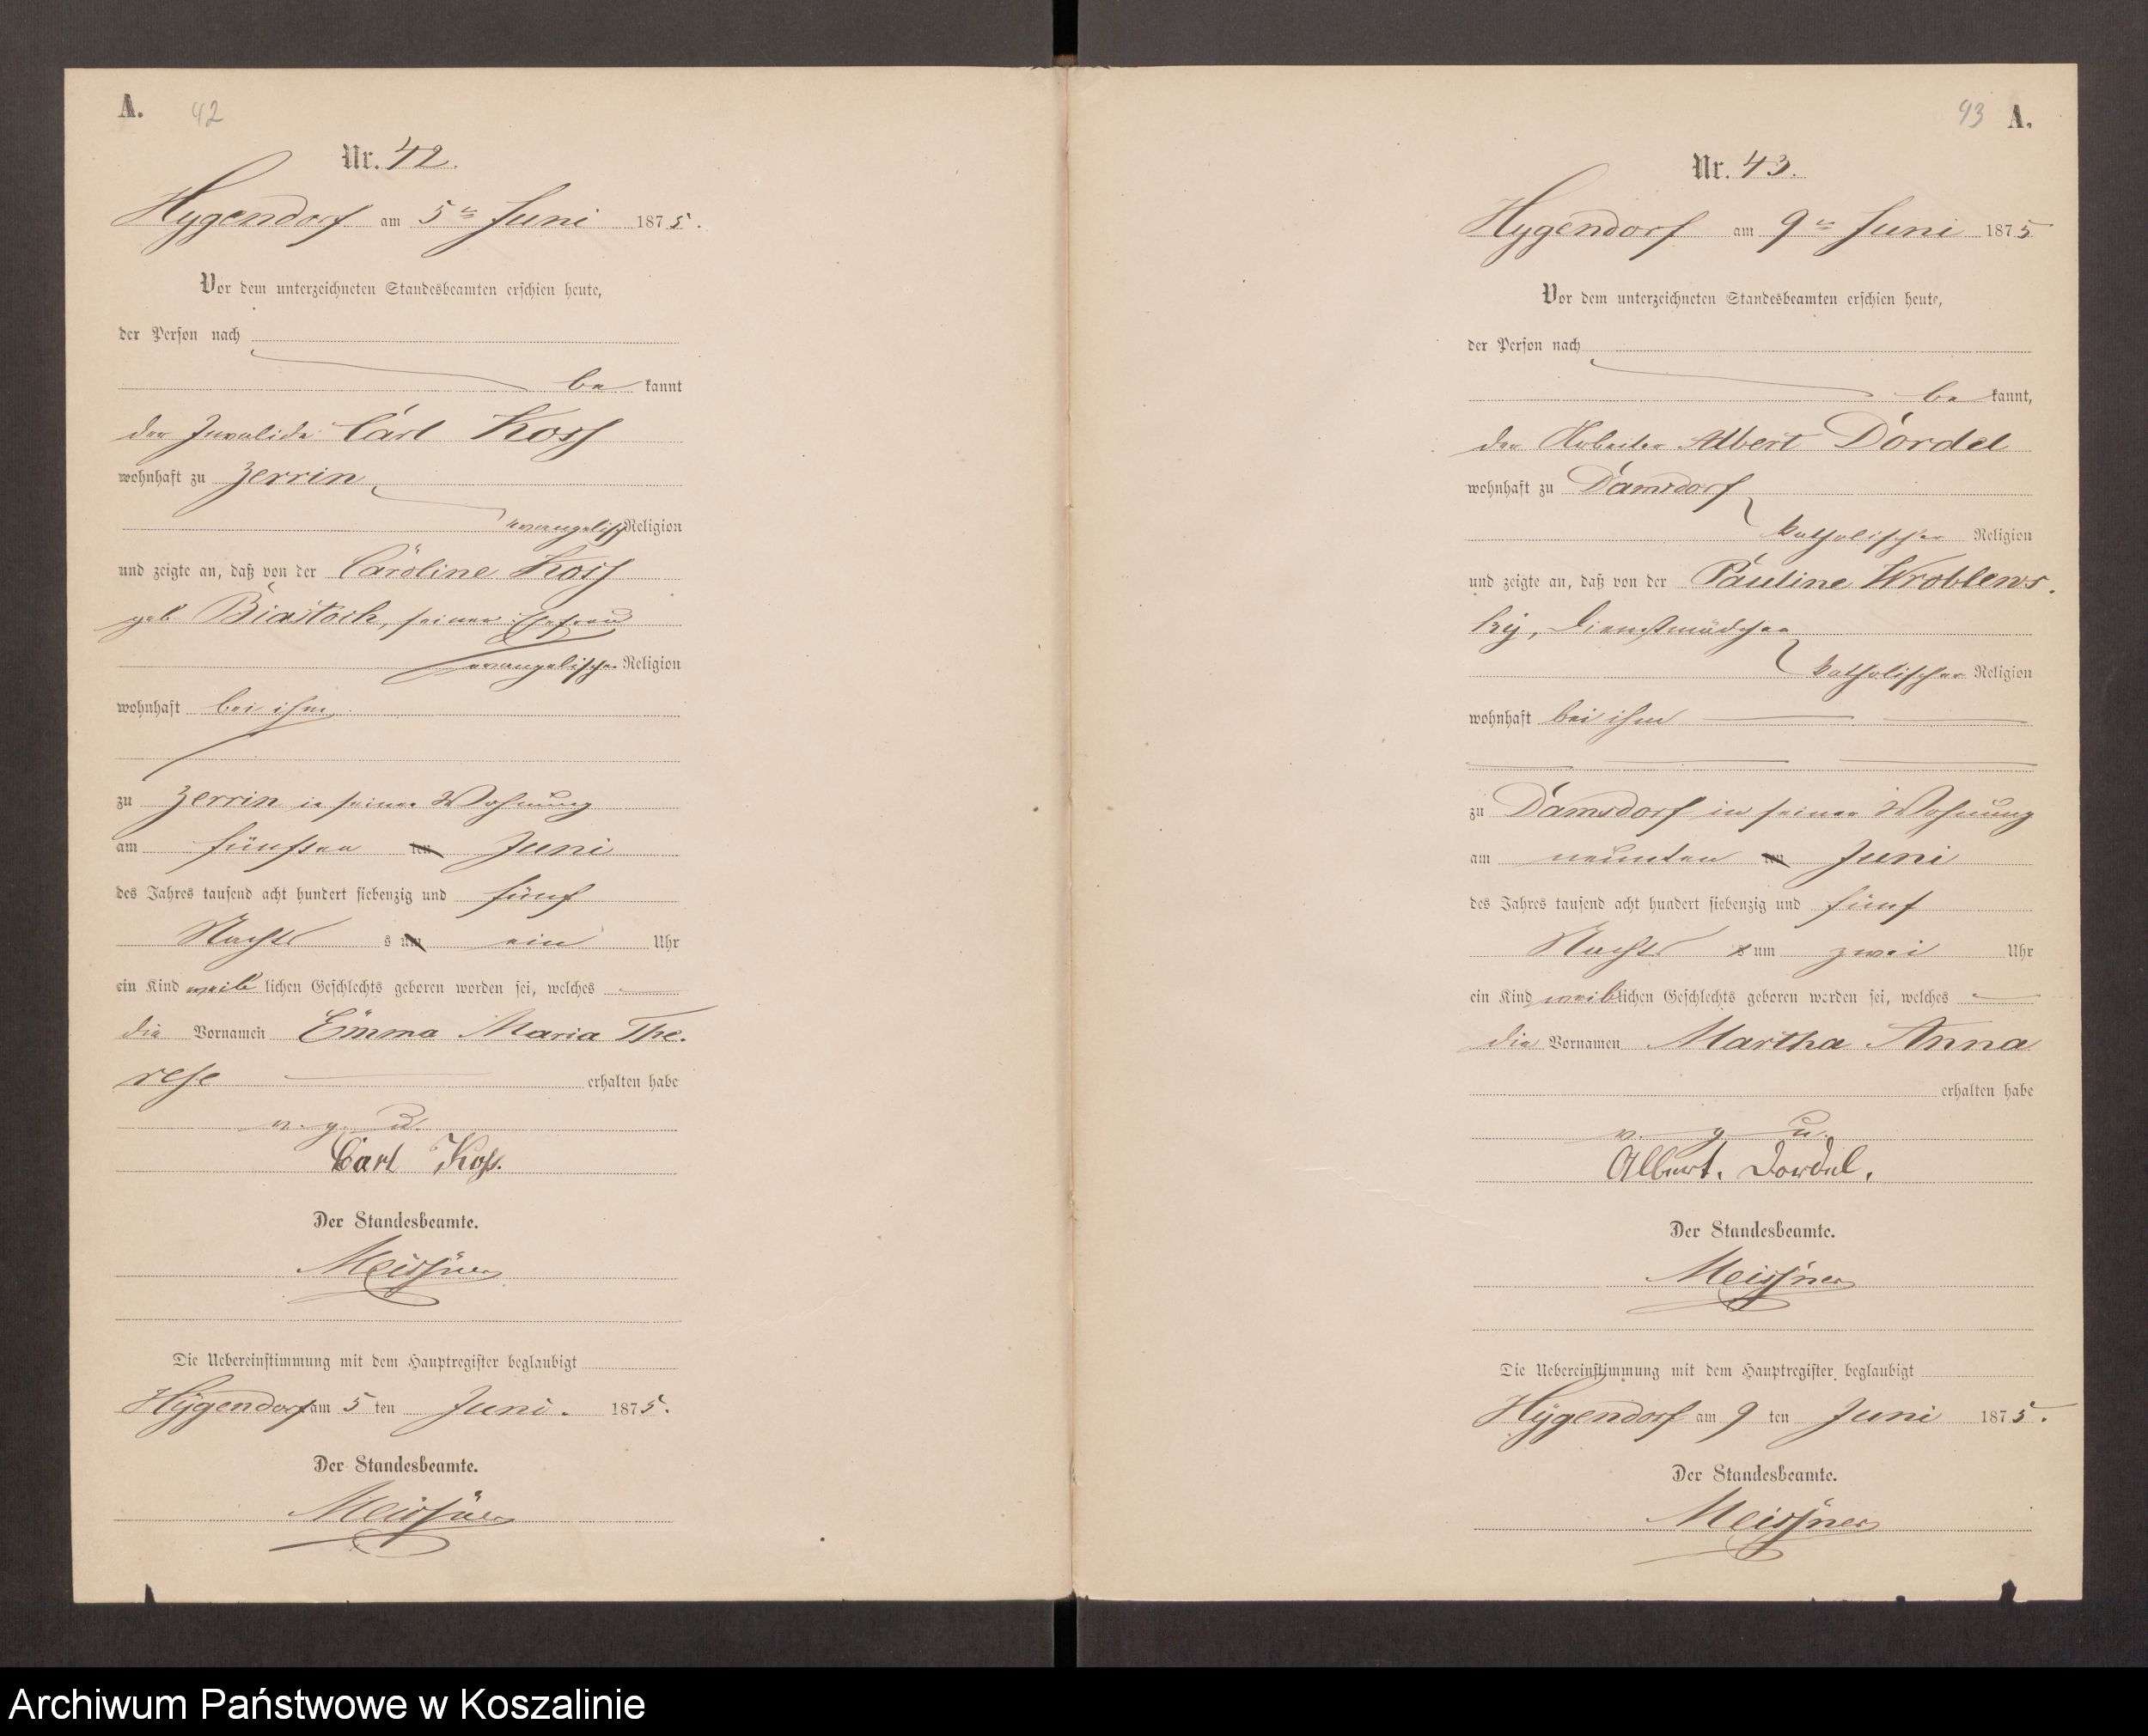 A. 42
Nr. 42.
Hygendorf am 5ten Juni 1875.
Vor dem unterzeichneten Standesbeamten erschien heute,
der Person nach
be kannt
der Invalide Carl Koss
wohnhaft zu Zerrin
evangelisch Religion
und zeigte an, daß von der Caroline Koss
geb Biastoch, seiner Ehefrau
evangelischer Religion
wohnhaft bei ihm
zu Zerrin in seiner Wohnung
am fünften ten Juni
des Jahres tausend acht hundert siebenzig und fünf
Nachts s um ein Uhr
ein Kind weib lichen Geschlechts geboren worden sei, welches
die Vornamen Emma Maria The-
rese erhalten habe
v. g. u.
Carl Koß.
Der Standesbeamte.
Meissner
Die Uebereinstimmung mit dem Hauptregister beglaubigt
Hygendorf am 5 ten Juni. 1875.
Der Standesbeamte.
Meissner
43 A.
Nr. 43.
Hygendorf am 9ten Juni 1875
Vor dem unterzeichneten Standesbeamten erschien heute,
der Person nach
be kannt,
der Arbeiter Albert Dordel
wohnhaft zu Damsdorf
katholischer Religion
und zeigte an, daß von der Pauline Wroblews-
ky, Dienstmädchen
katholischer Religion
wohnhaft bei ihm
zu Damsdorf in seiner Wohnung
am neunten ten Juni
des Jahres tausend acht hundert siebenzig und fünf
Nachts s um zwei Uhr
ein Kind weiblichen Geschlechts geboren worden sei, welches
die Vornamen Martha Anna
erhalten habe
v. g. u.
Albert. Dordel.
Der Standesbeamte.
Meissner
Die Uebereinstimmung mit dem Hauptregister beglaubigt
Hygendorf am 9 ten Juni 1875.
Der Standesbeamte.
Meissner
Archiwum Państwowe w Koszalinie